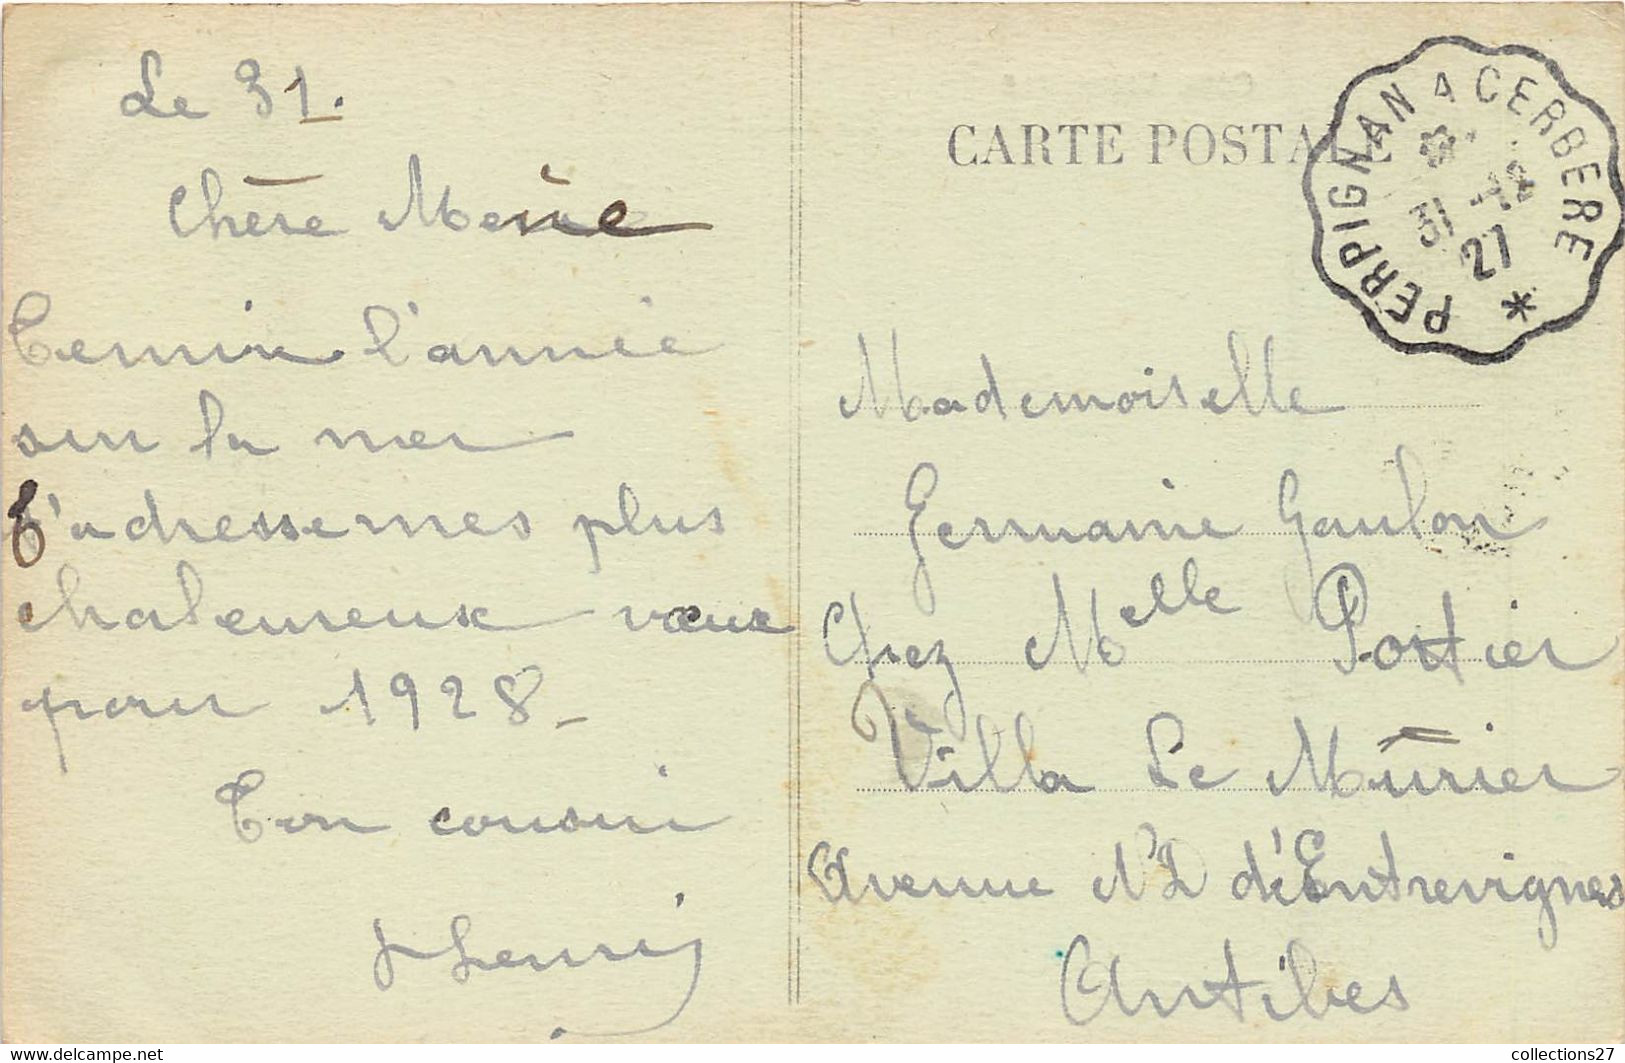 Le 31.
Chère Mène
Termine l'année
sur la mer
T'adresse mes plus
chaleureux vœux
pour 1928
Ton cousin
Henri
CARTE POSTALE
PERPIGNAN A CERBERE
31 -12
27
Mademoiselle
Germaine Gaulon
Chez Melle Portier
Villa Le Mûrier
Avenue N2 d'Entrevignes
Antibes
https://www.delcampe.net
collections27